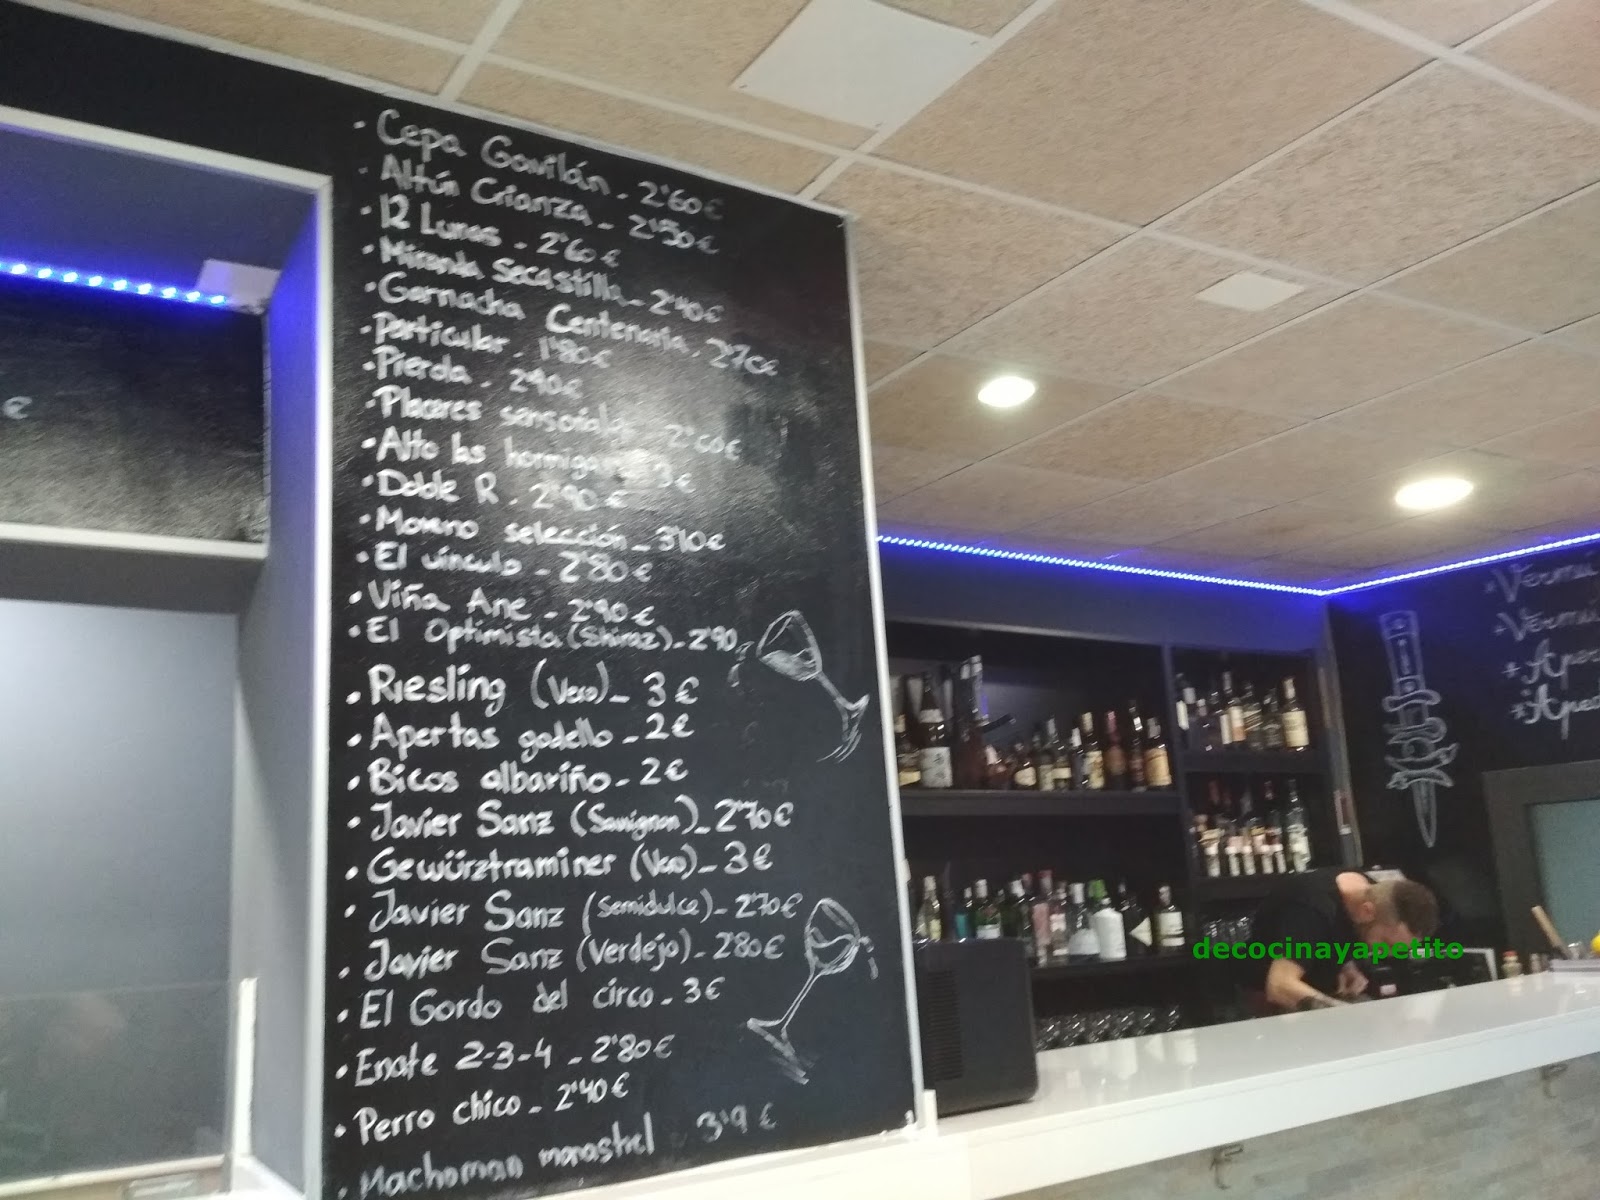 · Cepa Gavilán - 2'60 €
· Altún Crianza - 2'50 €
· 12 Lunas - 2'60 €
· Miranda Secastilla - 2'40 €
· Garnacha Centenaria - 2'70 €
· Particular - 1'80 €
· Pierda - 2'40 €
· Placeres sensoriales
· Alto las hormigas 3 €
· Doble R - 2'90 €
· Moreno selección - 3'10 €
· El vínculo - 2'80 €
· Viña Ane - 2'90 €
· El Optimista (Shiraz) - 2'90
· Riesling (Vero) - 3 €
· Apertas godello - 2 €
· Bicos albariño - 2 €
· Javier Sanz (Sauvignon) - 2'70 €
· Gewürztraminer (Vero) - 3 €
· Javier Sanz (Semidulce) - 2'70 €
· Javier Sanz (Verdejo) - 2'80 €
· El Gordo del circo - 3 €
· Enate 2-3-4 - 2'80 €
· Perro chico - 2'40 €
· Machoman monastrel 3'9 €
€
*Vermú
*Vermú
decocinayapetito